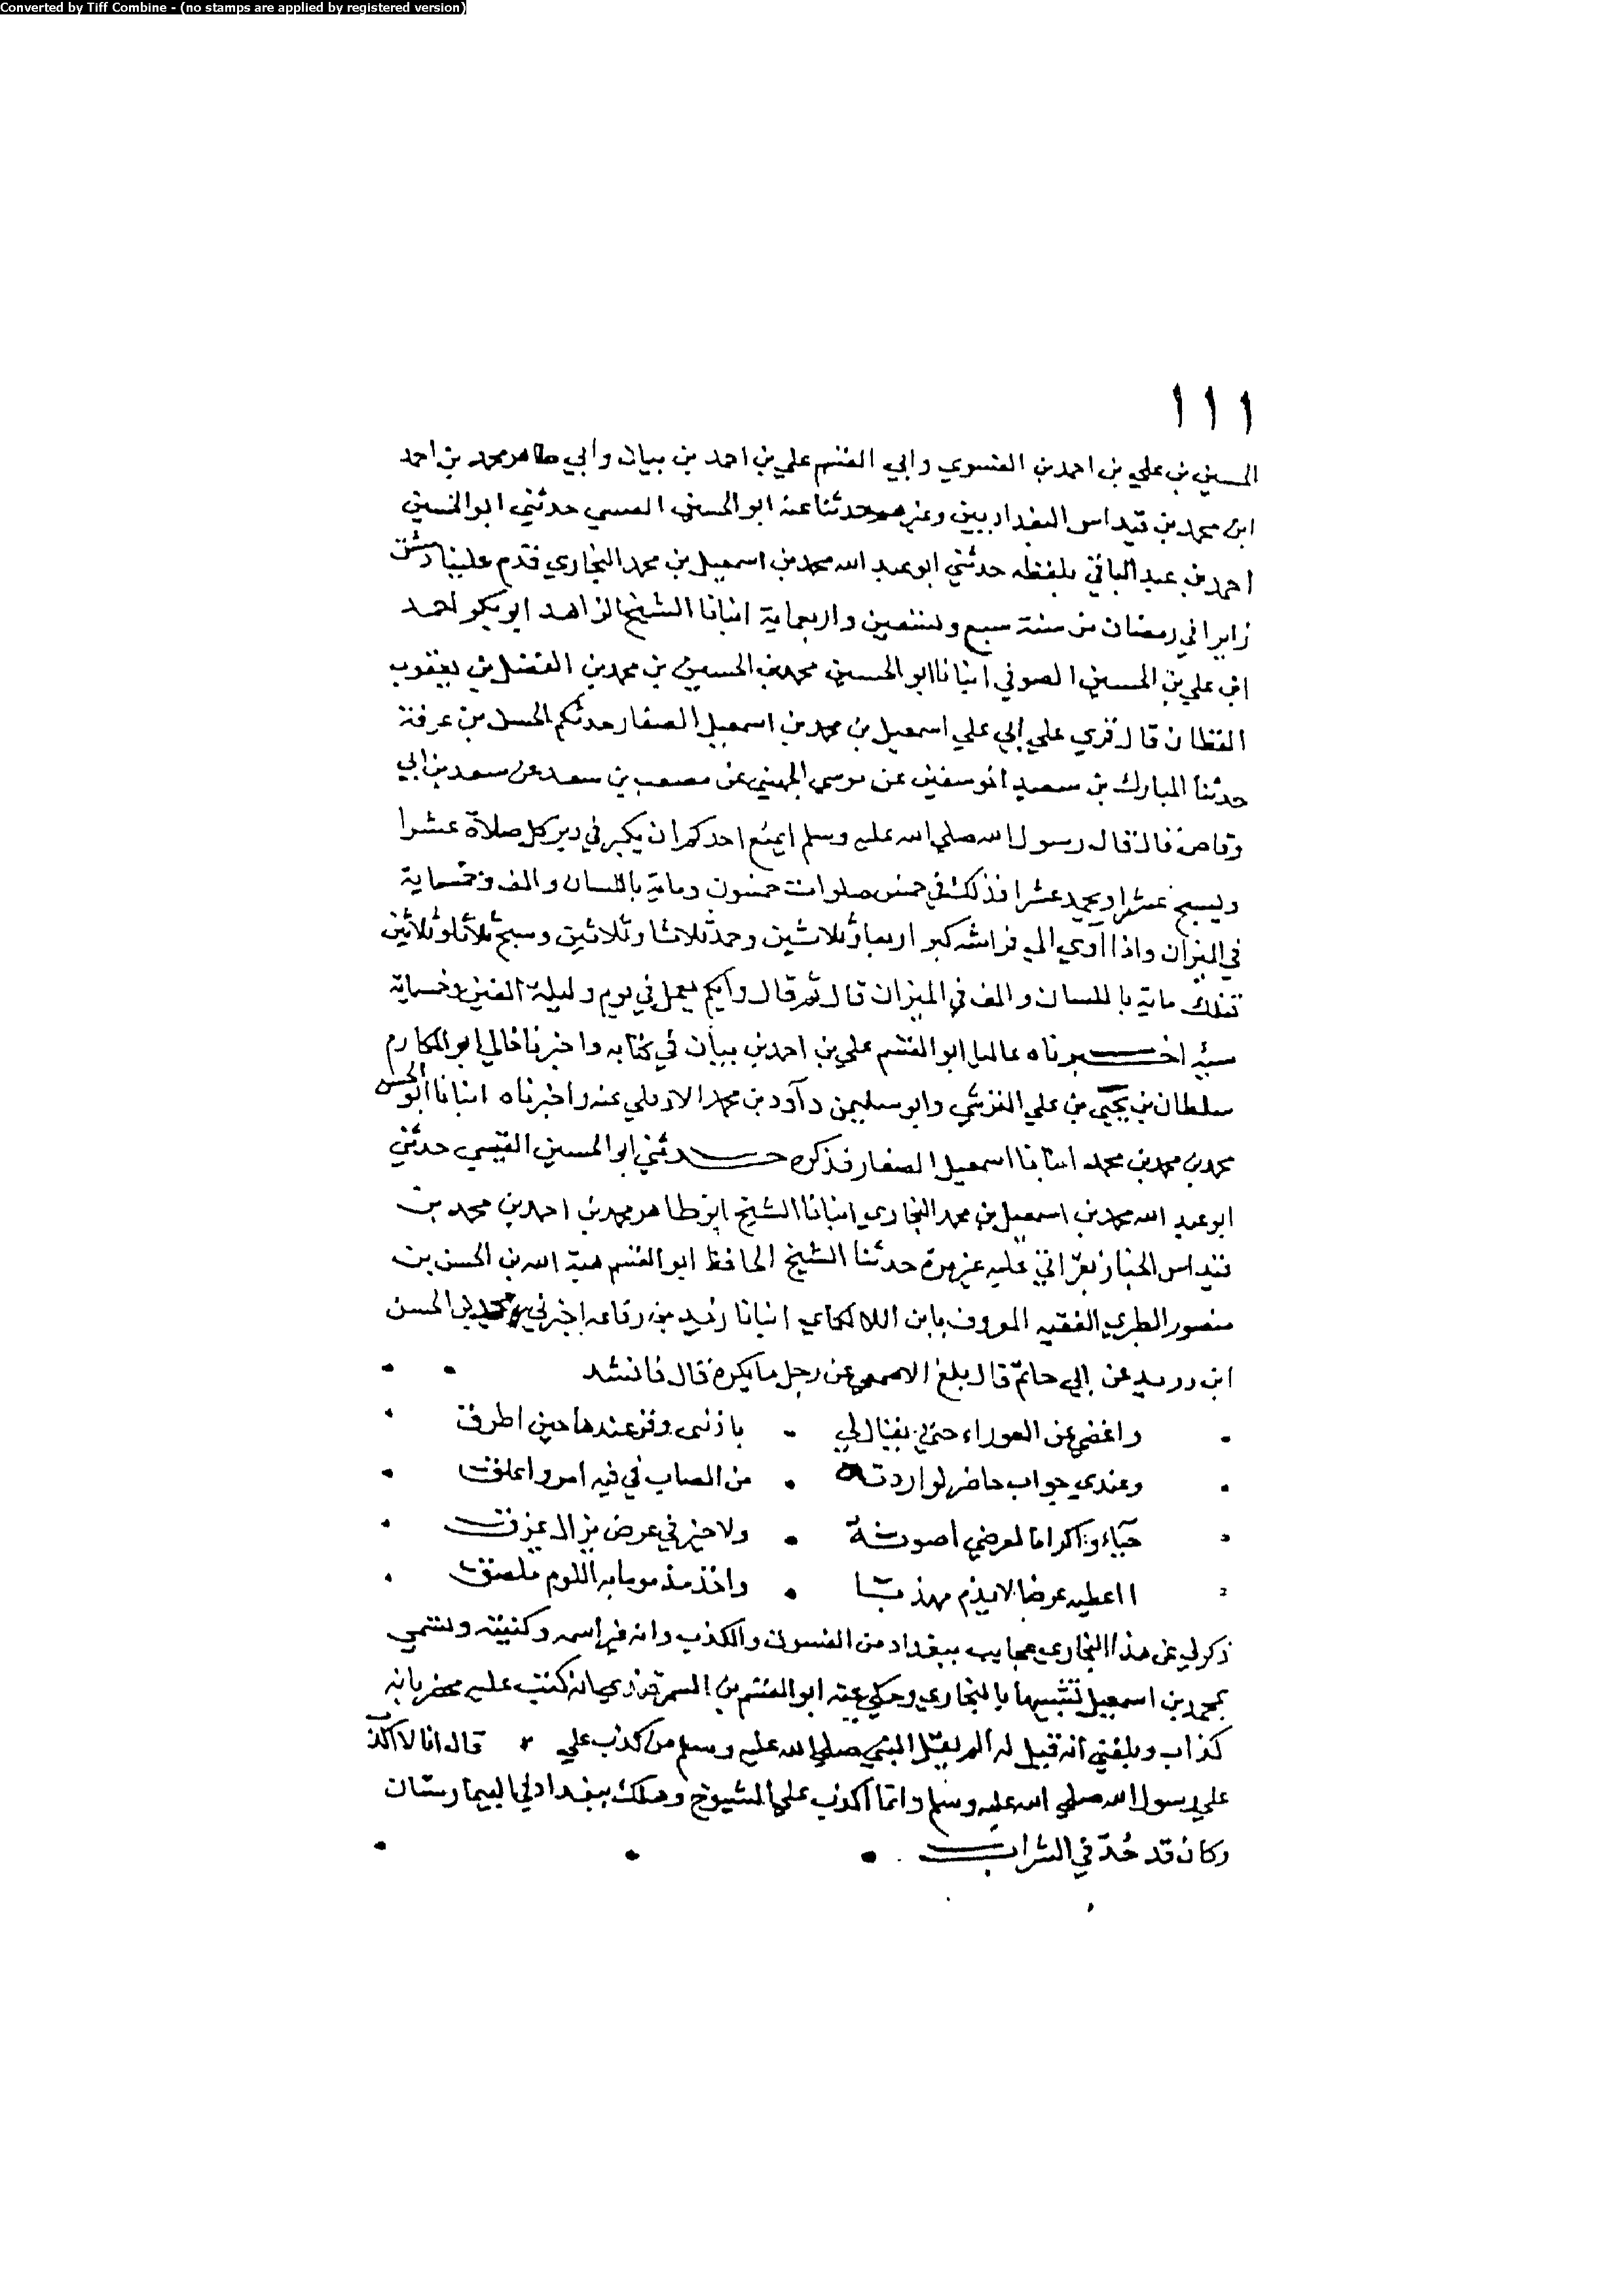 Converted by Tiff Combine - (no stamps are applied by registered version)
١١١
الحسين بن علي بن احمد بن الفسوي وابي القسم علي بن احمد بن بيان وأبي طاهر محمد بن احمد
ابن محمد بن قيداس البغداديين وغيرهم حدثنا عنه ابو الحسين القيسي حدثني ابو الحسين
احمد بن عبد الباقي بلفظه حدثني ابو عبد الله محمد بن اسمعيل بن محمد البخاري قدم علينا دمشق
زايرا في رمضان من سنة سبع وتسعين واربعماية انبانا الشيخ الزاهد ابو بكر احمد
ابن علي بن الحسين الصوفي انبانا ابو الحسين محمد بن الحسين بن محمد بن الفضل بن يعقوب
القطان قال قري علي ابي علي اسمعيل بن محمد بن اسمعيل الصفار حدثكم الحسن بن عرفة
حدثنا المبارك بن سعيد اخو سفين عن موسي الجهني عن مصعب بن سعد عن سعد بن ابي
وقاص قال قال رسول الله صلي الله عليه وسلم ايمنع احدكم ان يكبر في دبر كل صلاة عشرا
ويسبح عشرا ويحمد عشرا فذلك في خمس صلوات خمسون ومايه باللسان والف وخمسماية
في الميزان واذا آوي الي فراشه كبر اربعا وثلاثين وحمد ثلاثا وثلاثين وسبح ثلاثا وثلاثين
فتلك مايه باللسان والف في الميزان قال ثم قال وايكم يعمل في يوم وليلة الفين وخمسماية
سيئه اخبرناه عاليا ابو القسم علي بن احمد بن بيان في كتابه واخبرنا خالي ابو المكارم
سلطان بن يحيي بن علي القرشي وابو سليمن دآود بن محمد الاربلي عنه واخبرناه انبانا أبو الحسن
محمد بن محمد بن محمد انبانا اسمعيل الصفار فذكره حدثني ابو الحسين القيسي حدثني
ابو عبد الله محمد بن اسمعيل بن محمد البخاري انبانا الشيخ ابو طاهر محمد بن احمد بن محمد بن
قيداس الحبار بقراتي عليه غير مرة حدثنا الشيخ الحافظ ابو القسم هبة الله بن الحسن بن
منصور الطبري الفقيه المعروف بابن اللالكاي انبانا رفاعه اخبرني محمد بن الحسن
ابن دريد عن ابي حاتم قال بلغ الاصمعي عن رجل ما يكره قال فانشد
واغضي عن العوراء حتي يقال لي باذنى وقر عندها حين اطرق
وعندي جواب حاضر لو اردته من الصاب في فيه امر واعلق
حيآء واكراما لعرضي اصونه ولا خير في عرض يزال يمزق
ااعطيه عرضا لا يذم مهذبا واخذ مذموما به اللوم ملصق
ذكر لي عن هذا البخاري عجايب ببغداد من الفسوق والكذب وانه غير إسمه وكنيته وتسمي
بمحمد بن اسمعيل تشبيها بالبخاري وحكي عنه ابو القسم بن السمرقندي انه كتب عليه محضر بانه
كذاب وبلغني أنه قيل له ألم يقل النبي صلي الله عليه وسلم من كذب علي قال انا لا اكذب
علي رسول الله صلي الله عليه وسلم وانما اكذب علي الشيوخ وهلك ببغداد في البيمارستان
وكان قد حُدّ في الشراب